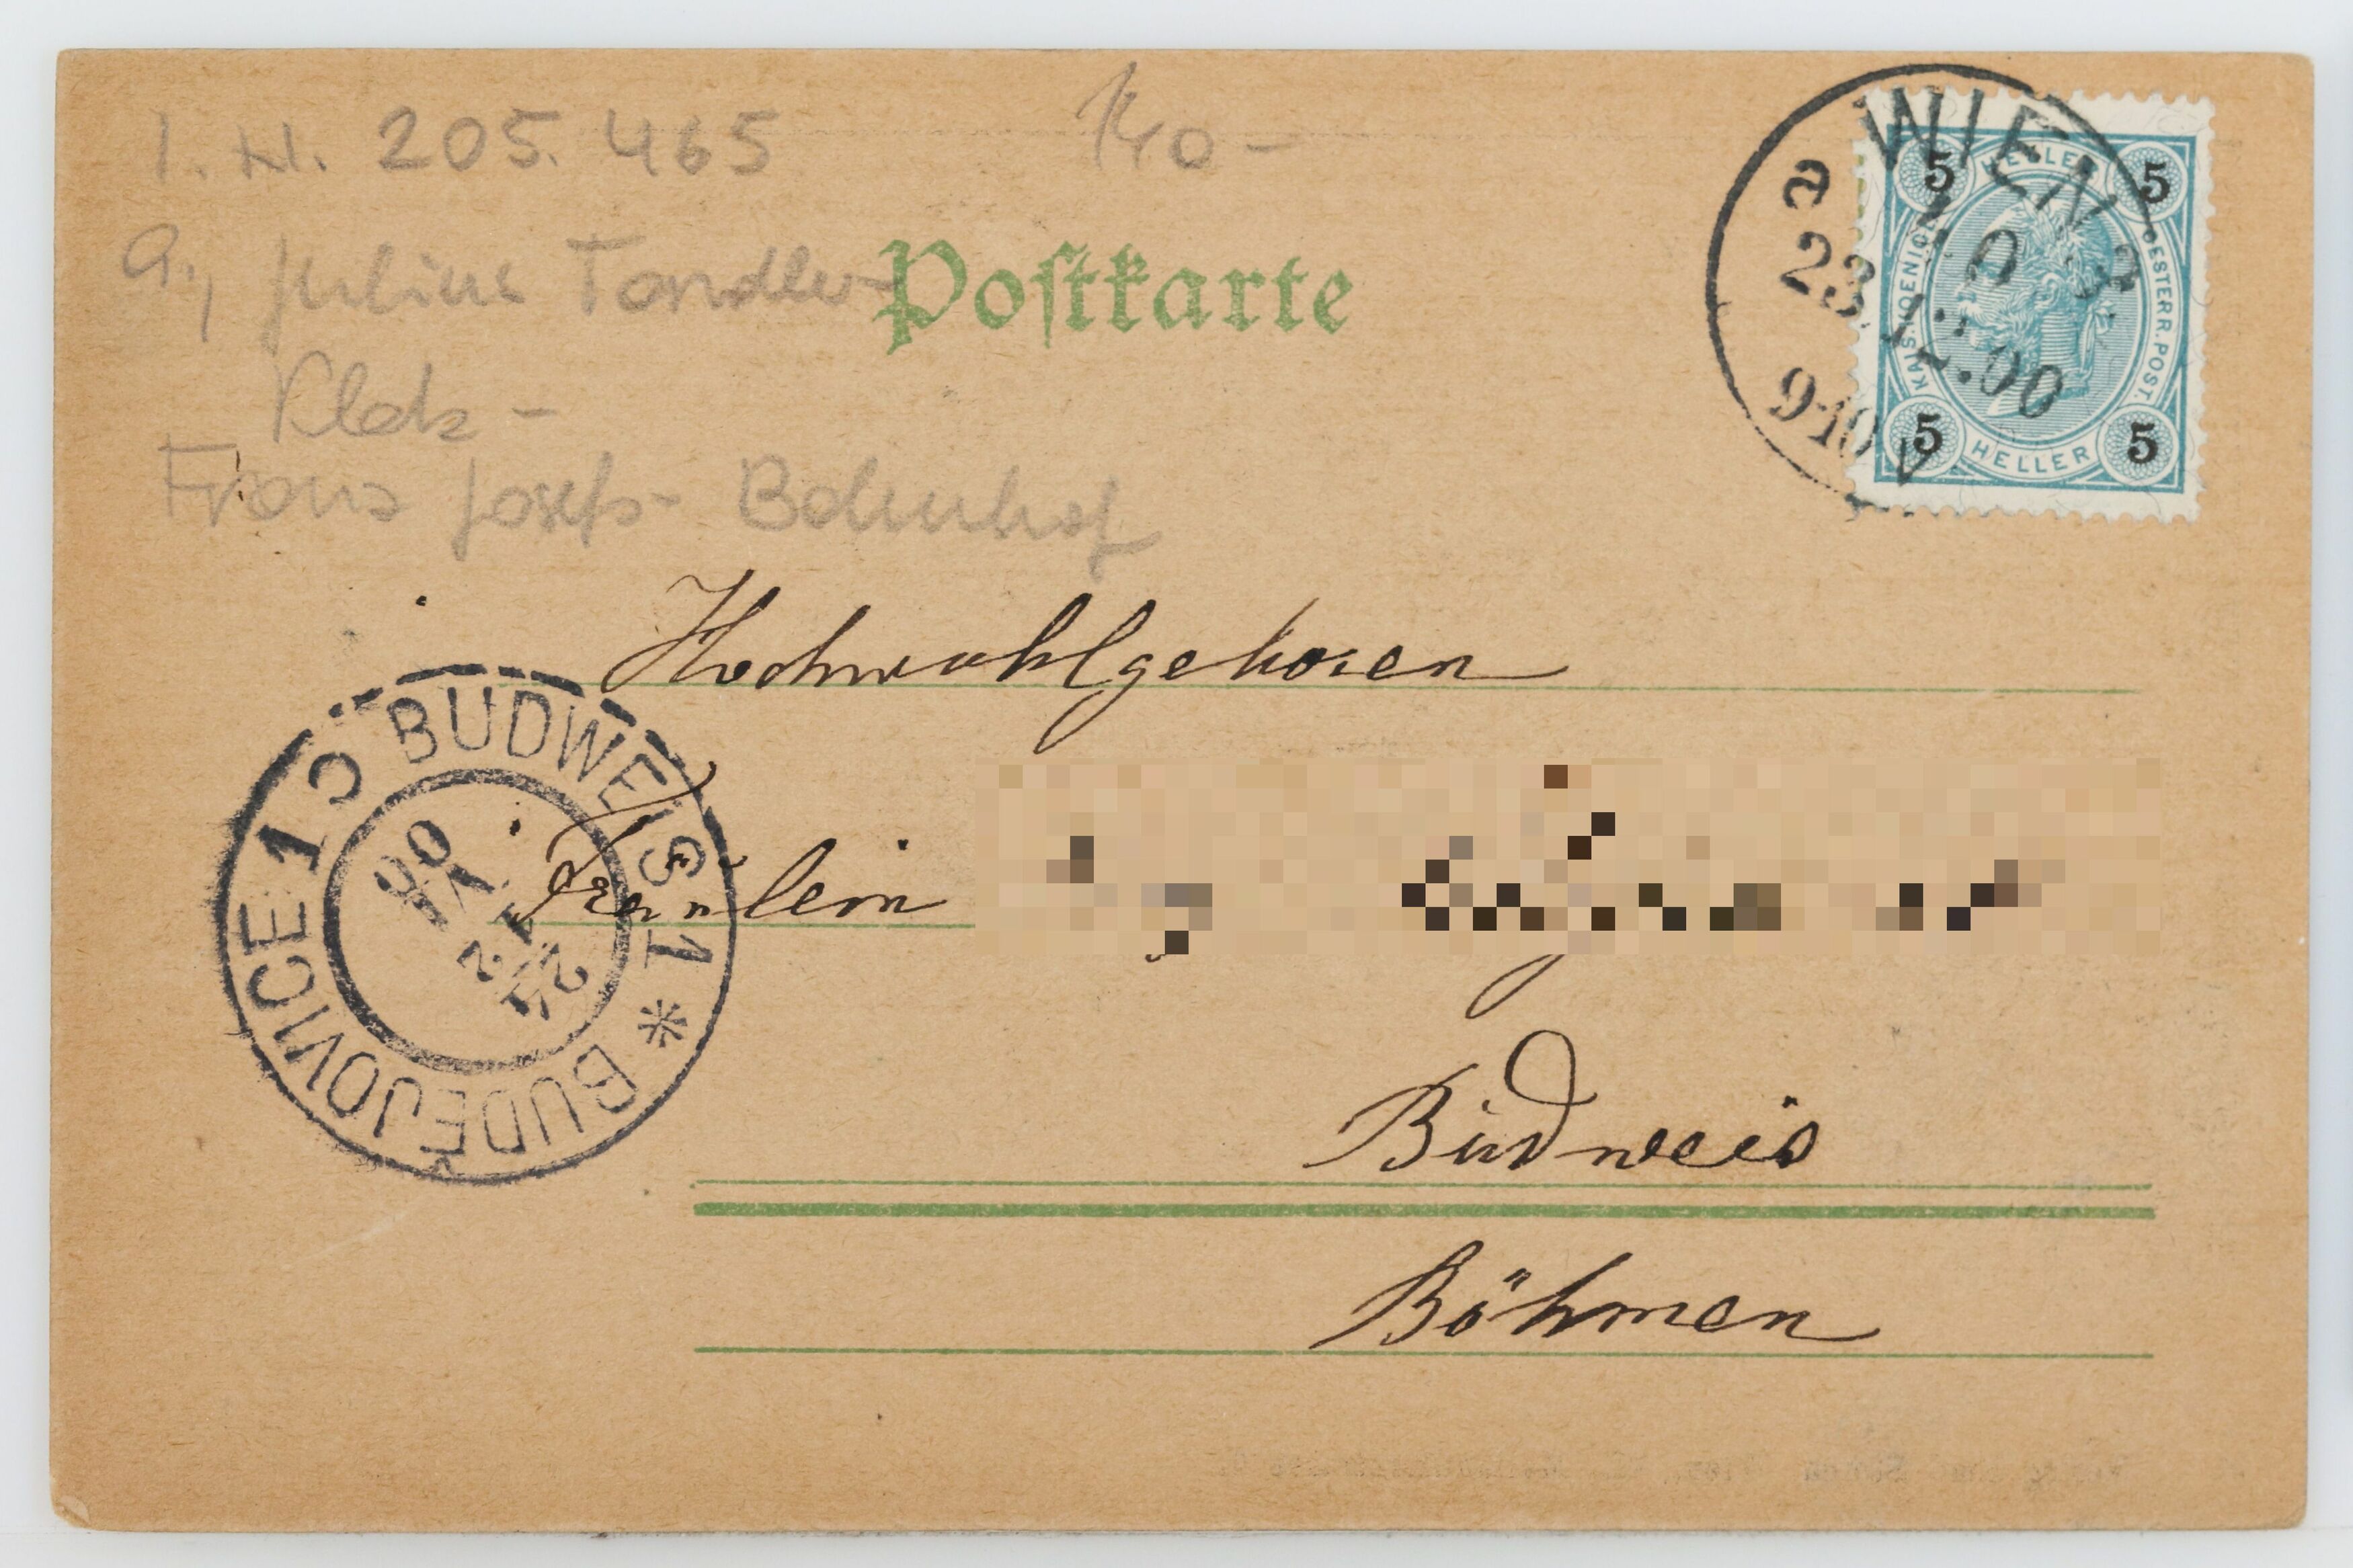 I. N. 205.465
140 -
9., Julius Tandler-
Platz -
Franz Josefs- Bahnhof
Postkarte
WIEN
a
23.12.00
9-10 V
5 HELLER 5
KAIS. KOENIGL. OESTERR. POST.
5 HELLER 5
Hochwohlgeboren
Fräulein
Budweis
Böhmen
BUDWEIS 1 * BUDĚJOVICE 1
24
12
00